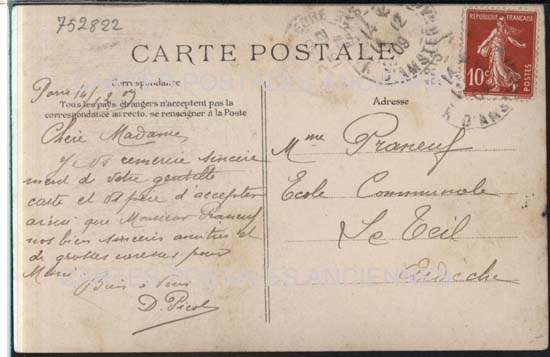 752822
CARTE POSTALE
RÉPUBLIQUE FRANÇAISE
10c
POSTES
R. D'AMSTERDAM
14-12
09
Correspondance
Tous les pays étrangers n'acceptent pas la
correspondance au recto. se renseigner à la Poste
Adresse
Paris 14/12 09
Chère Madame
Je vs remercie sincère
ment de votre gentille
carte et vs prie d'accepter
ainsi que Monsieur Praneuf
nos bien sincères amitiés et
de grosses caresses pour
Bien à vous
D. Picot
Mme Praneuf
Ecole Communale
Le Teil
Ardèche
CARTES POSTALES ANCIENNES